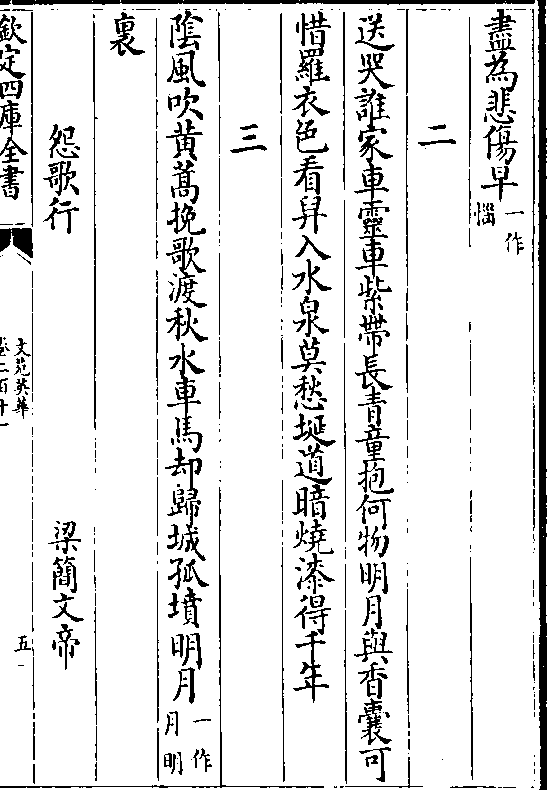 盡為悲傷早一作惱
二
送哭誰家車靈車紫帶長青童抱何物明月與香囊可
惜羅衣色看舁入水泉莫愁埏道暗燒漆得千年
三
陰風吹黃蒿挽歌渡秋水車馬却歸城孤墳明月一作月明
裏
怨歌行 梁簡文帝
欽定四庫全書
文苑英華
卷二百十一
五